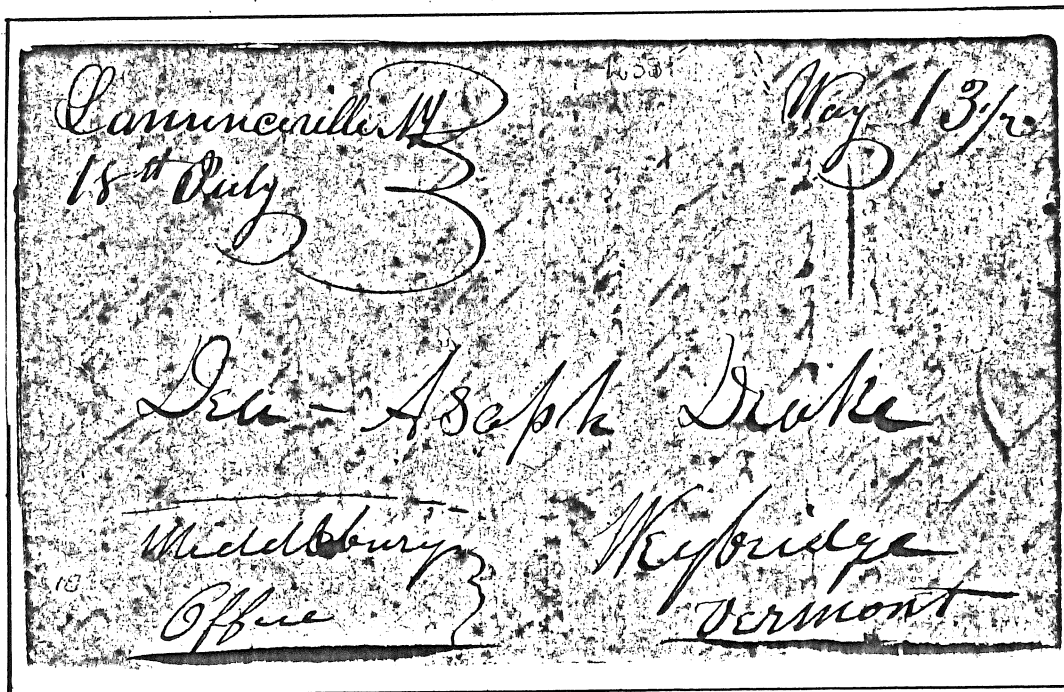 Lawrenceville NY
18th July
Way 13 1/2
Dea - Asaph Drake
Middlebury
Office
Weybridge
Vermont